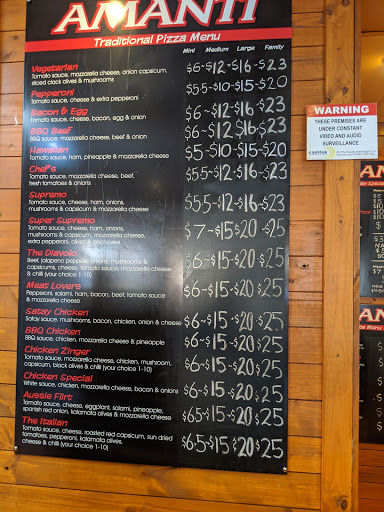 AMANTI
Traditional Pizza Menu
Mini Medium Large Family
Vegetarian $6-$12-$16-$23
Tomato sauce, mozzarella cheese, onion capsicum,
sliced black olives & mushrooms
Pepperoni $5.5-$10-$15-$20
Tomato sauce, cheese & extra pepperoni
Bacon & Egg $6-$12-$16-$23
Tomato sauce, cheese, bacon, egg & onion
BBQ Beef $6-$12-$16-$23
BBQ sauce, mozzarella cheese, beef & onion
Hawaiian $5-$10-$15-$20
Tomato sauce, ham, pineapple & mozzarella cheese
Chef's $5.5-$12-$16-$23
Tomato sauce, mozzarella cheese, beef,
fresh tomatoes & onions
Supremo $5.5-$12-$16-$23
Tomato sauce, cheese, ham, onions,
mushrooms & capsicum & mozzarella cheese
Super Supremo $7-$15-$20-$25
Tomato sauce, cheese, ham, onions,
mushrooms & capsicum & mozzarella cheese,
extra pepperoni, olives & anchovies
The Diavolo $6-$15-$20-$25
Beef, jalapeno peppers, onions, mushrooms &
capsicums, cheese, Tomato sauce, mozzarella cheese
& chilli (your choice 1-10)
Meat Lovers $6-$15-$20-$25
Pepperoni, salami, ham, bacon, beef, tomato sauce
& mozzarella cheese
Satay Chicken $6-$15-$20-$25
Satay sauce, mushrooms, bacon, chicken, onion & cheese
BBQ Chicken $6-$15-$20-$25
BBQ sauce, chicken, mozzarella cheese & pineapple
Chicken Zinger $6-$15-$20-$25
Tomato sauce, mozzarella cheese, chicken, mushroom,
capsicum, black olives & chilli (your choice 1-10)
Chicken Special $6-$15-$20-$25
White sauce, chicken, mozzarella cheese, bacon & onions
Aussie Flirt $6.5-$15-$20-$25
Tomato sauce, cheese, eggplant, salami, pineapple,
spanish red onion, kalamata olives & mozzarella cheese
The Italian $6.5-$15-$20$25
Tomato sauce, cheese, roasted red capsicum, sun dried
tomatoes, pepperoni, kalamata olives,
cheese & chilli (your choice 1-10)
WARNING
THESE PREMISES ARE
UNDER CONSTANT
VIDEO AND AUDIO
SURVEILLANCE